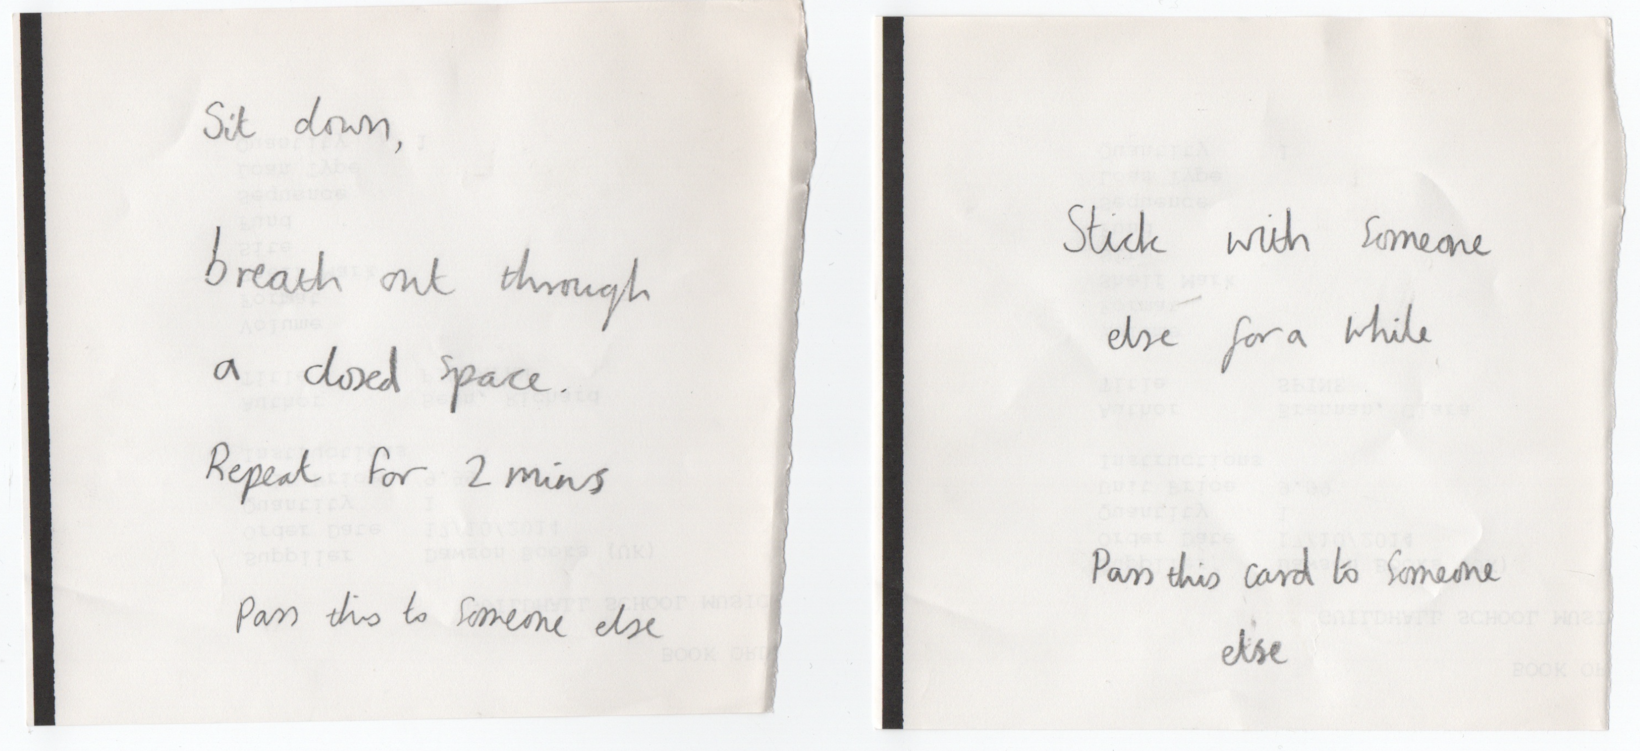 Sit down,
breath out through
a closed space.
Repeat for 2 mins
Pass this to someone else
Stick with someone
else for a while
Pass this card to someone
else